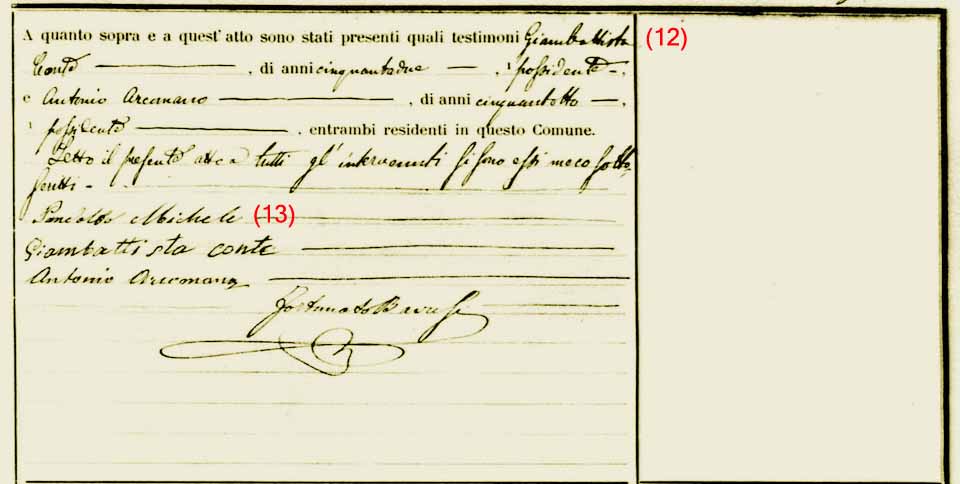 A quanto sopra e a quest' atto sono stati presenti quali testimoni Giambattista (12)
Conte, di anni cinquantadue, possidente,
e Antonio Arcomano, di anni cinquantotto,
possidente, entrambi residenti in questo Comune.
Letto il presente atto a tutti gl' intervenuti si sono essi meco sotto
scritti -
Michele (13)
Giambattista Conte
Antonio Arcomano
Fortunato